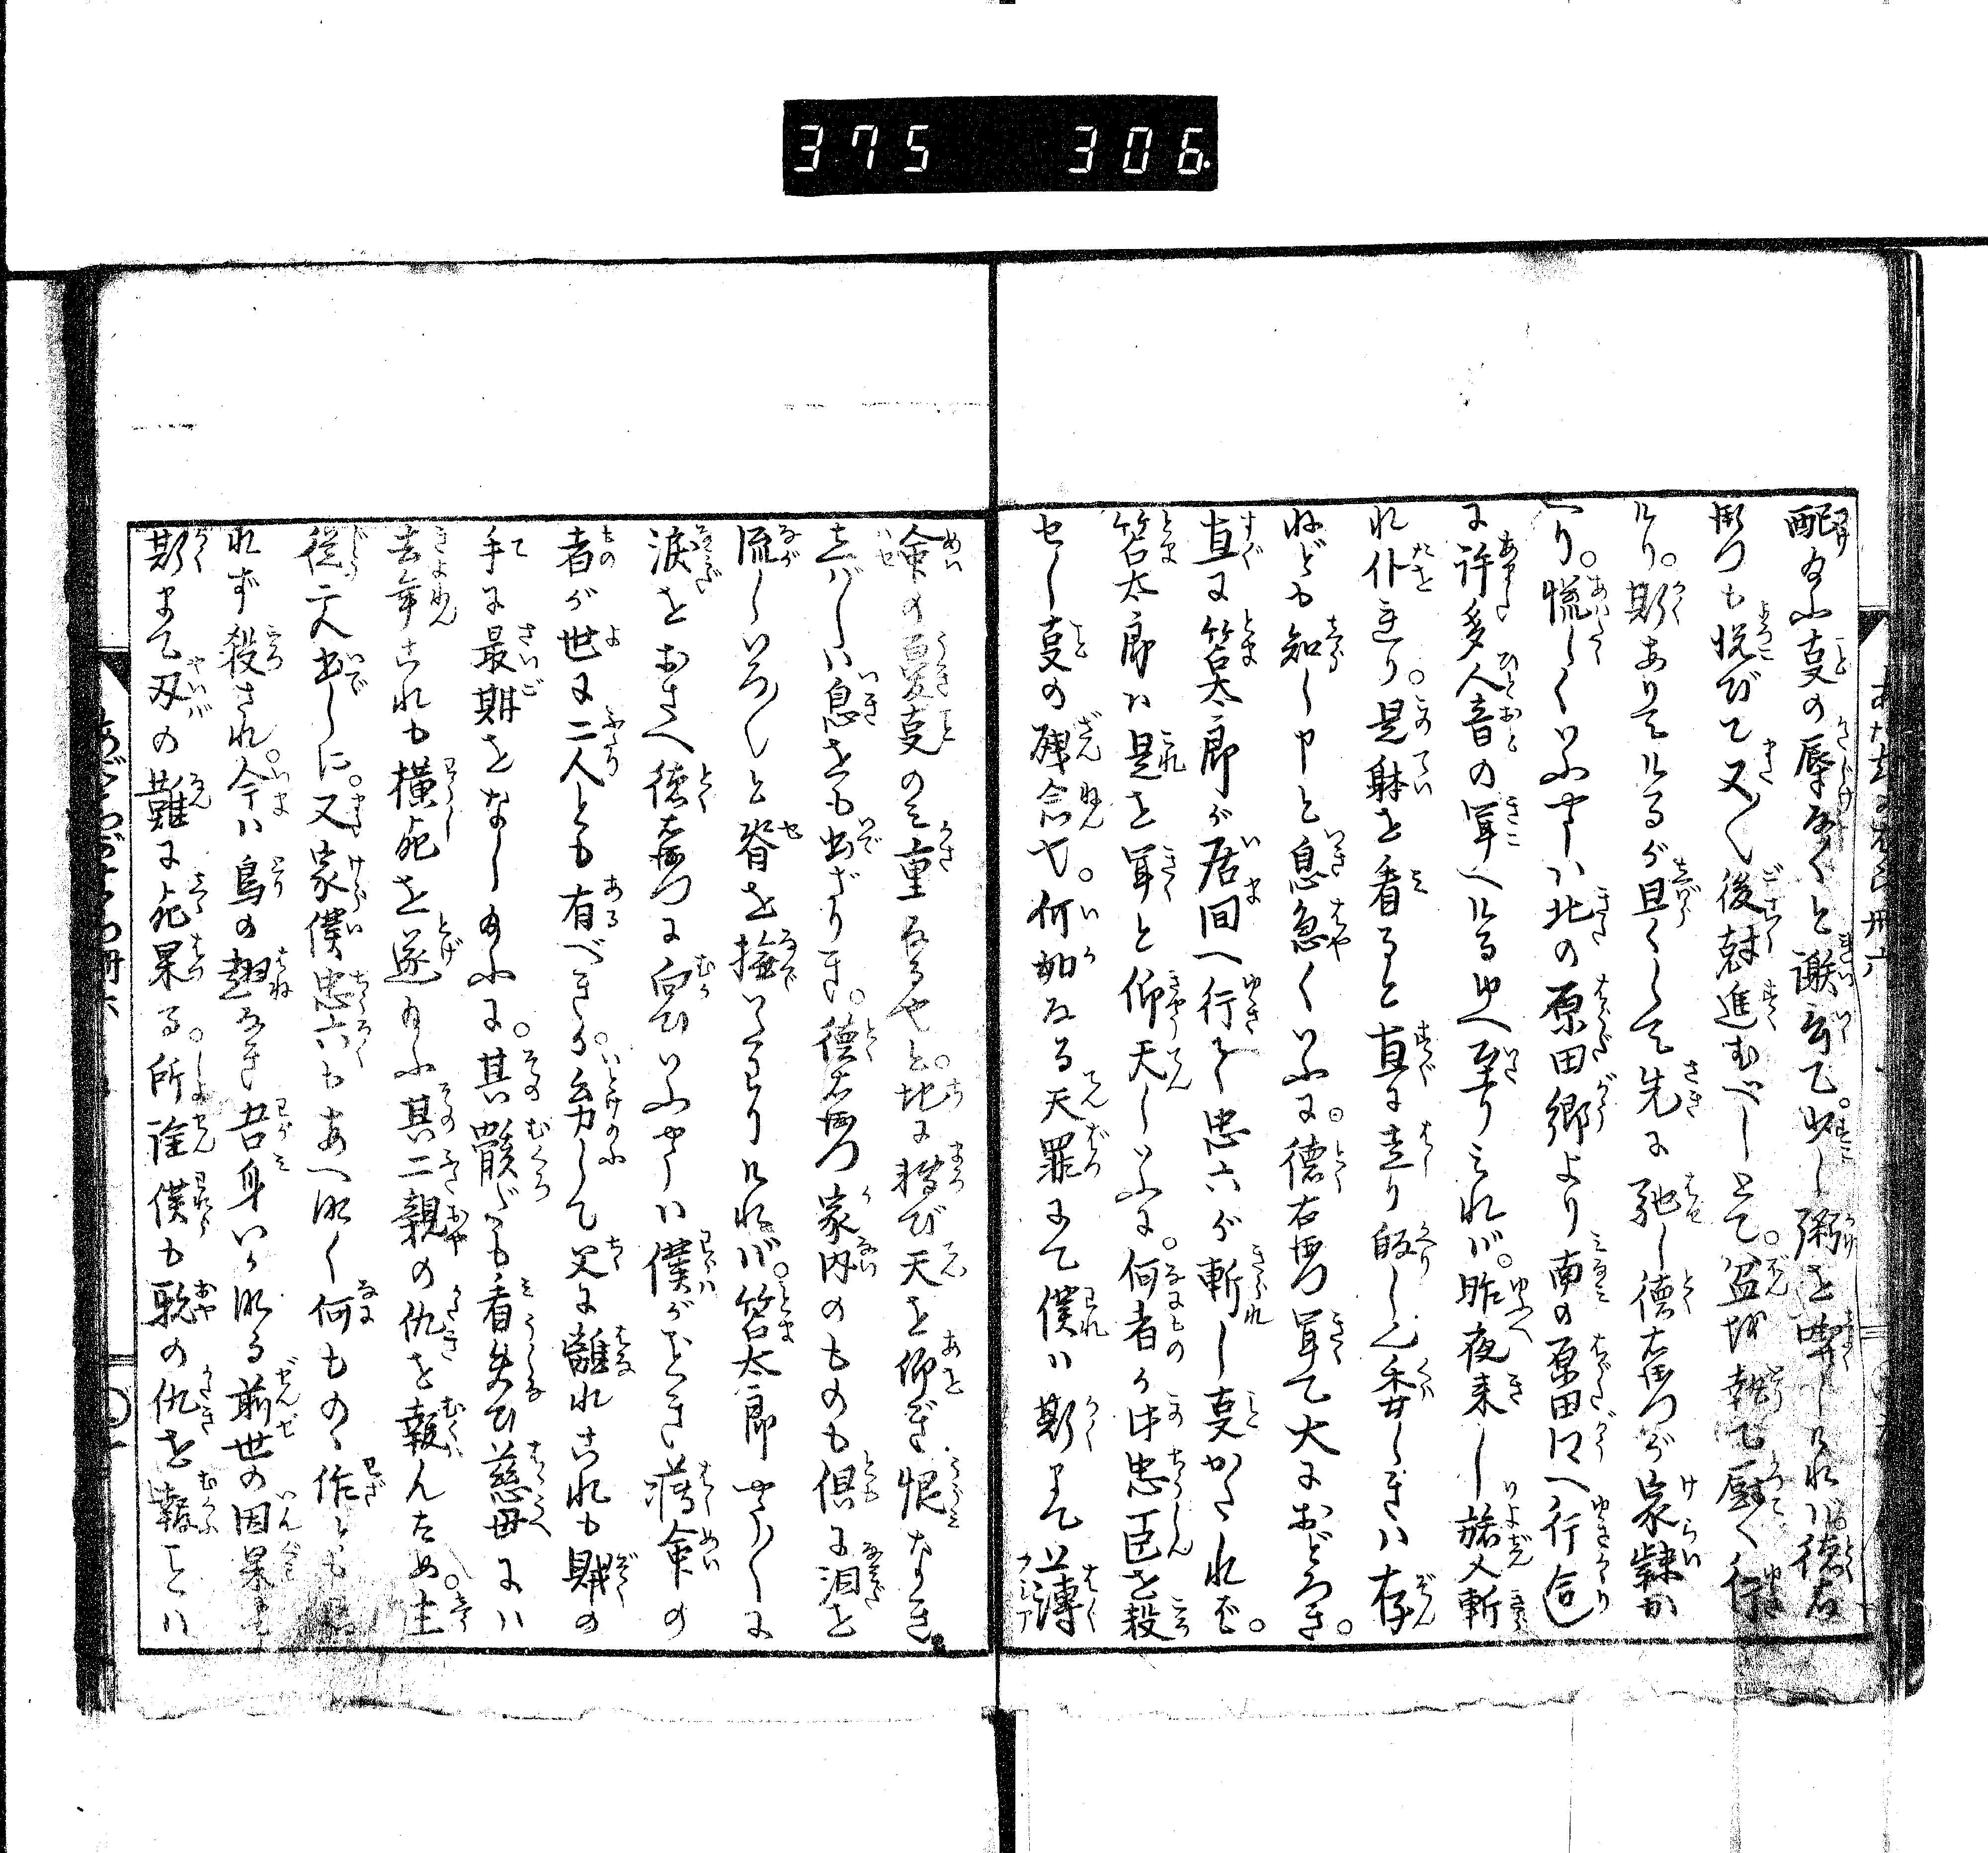 375 306
配給ふ叓の辱なくと謝言て。少し粥を啜しければ徳右
衛門も悦びて又〳〵後刻進むべしとて。盆抔執て厨へ行
けり。斯ありてけるが且くして先に馳し徳右衛門が家隷か
へり。慌しくいふやうハ北の原田郷より南の原田江へ行合
に許多人音の聞へけるゆへ至りみれば。昨夜来し旅人斬
れ仆をり。是躰を看ると直に走り皈し也委しきハ存
ねども知し申と息急くいふに。徳右衛門聞て大におどろき。
直に笘太郎が居間へ行きて忠六が斬し叓かたれば。
笘太郎ハ是を聞と仰天しいふに。何者か此忠臣を殺
せし叓の残念也。何如なる天罪にて僕ハ斯まで薄
命の憂叓のミ重なるやと。地に轉び天を仰ぎ恨なき
しばしハ息をも出ざりき。徳右衛門家内のものも倶に泪を
流しいろ〳〵と脊を撫いたわりければ。笘太郎やう〳〵に
涙をおさへ徳右衛門に向ひいふやうハ僕がごとき薄命の
者が世に二人とも有べきか。幼して父に離れこれも賊の
手に最期をなし給ふに。其骸だも看失ひ慈母にハ
去年これも横死を遂給ふ其二親の仇を報んため主
従二人出しに。又家僕忠六もあへなく何ものゝ作とも
れず殺され。今ハ鳥の翅なき吾身いかなる前世の因果
斯まで刃の難に死果る。所詮僕も親の仇を報ことハ